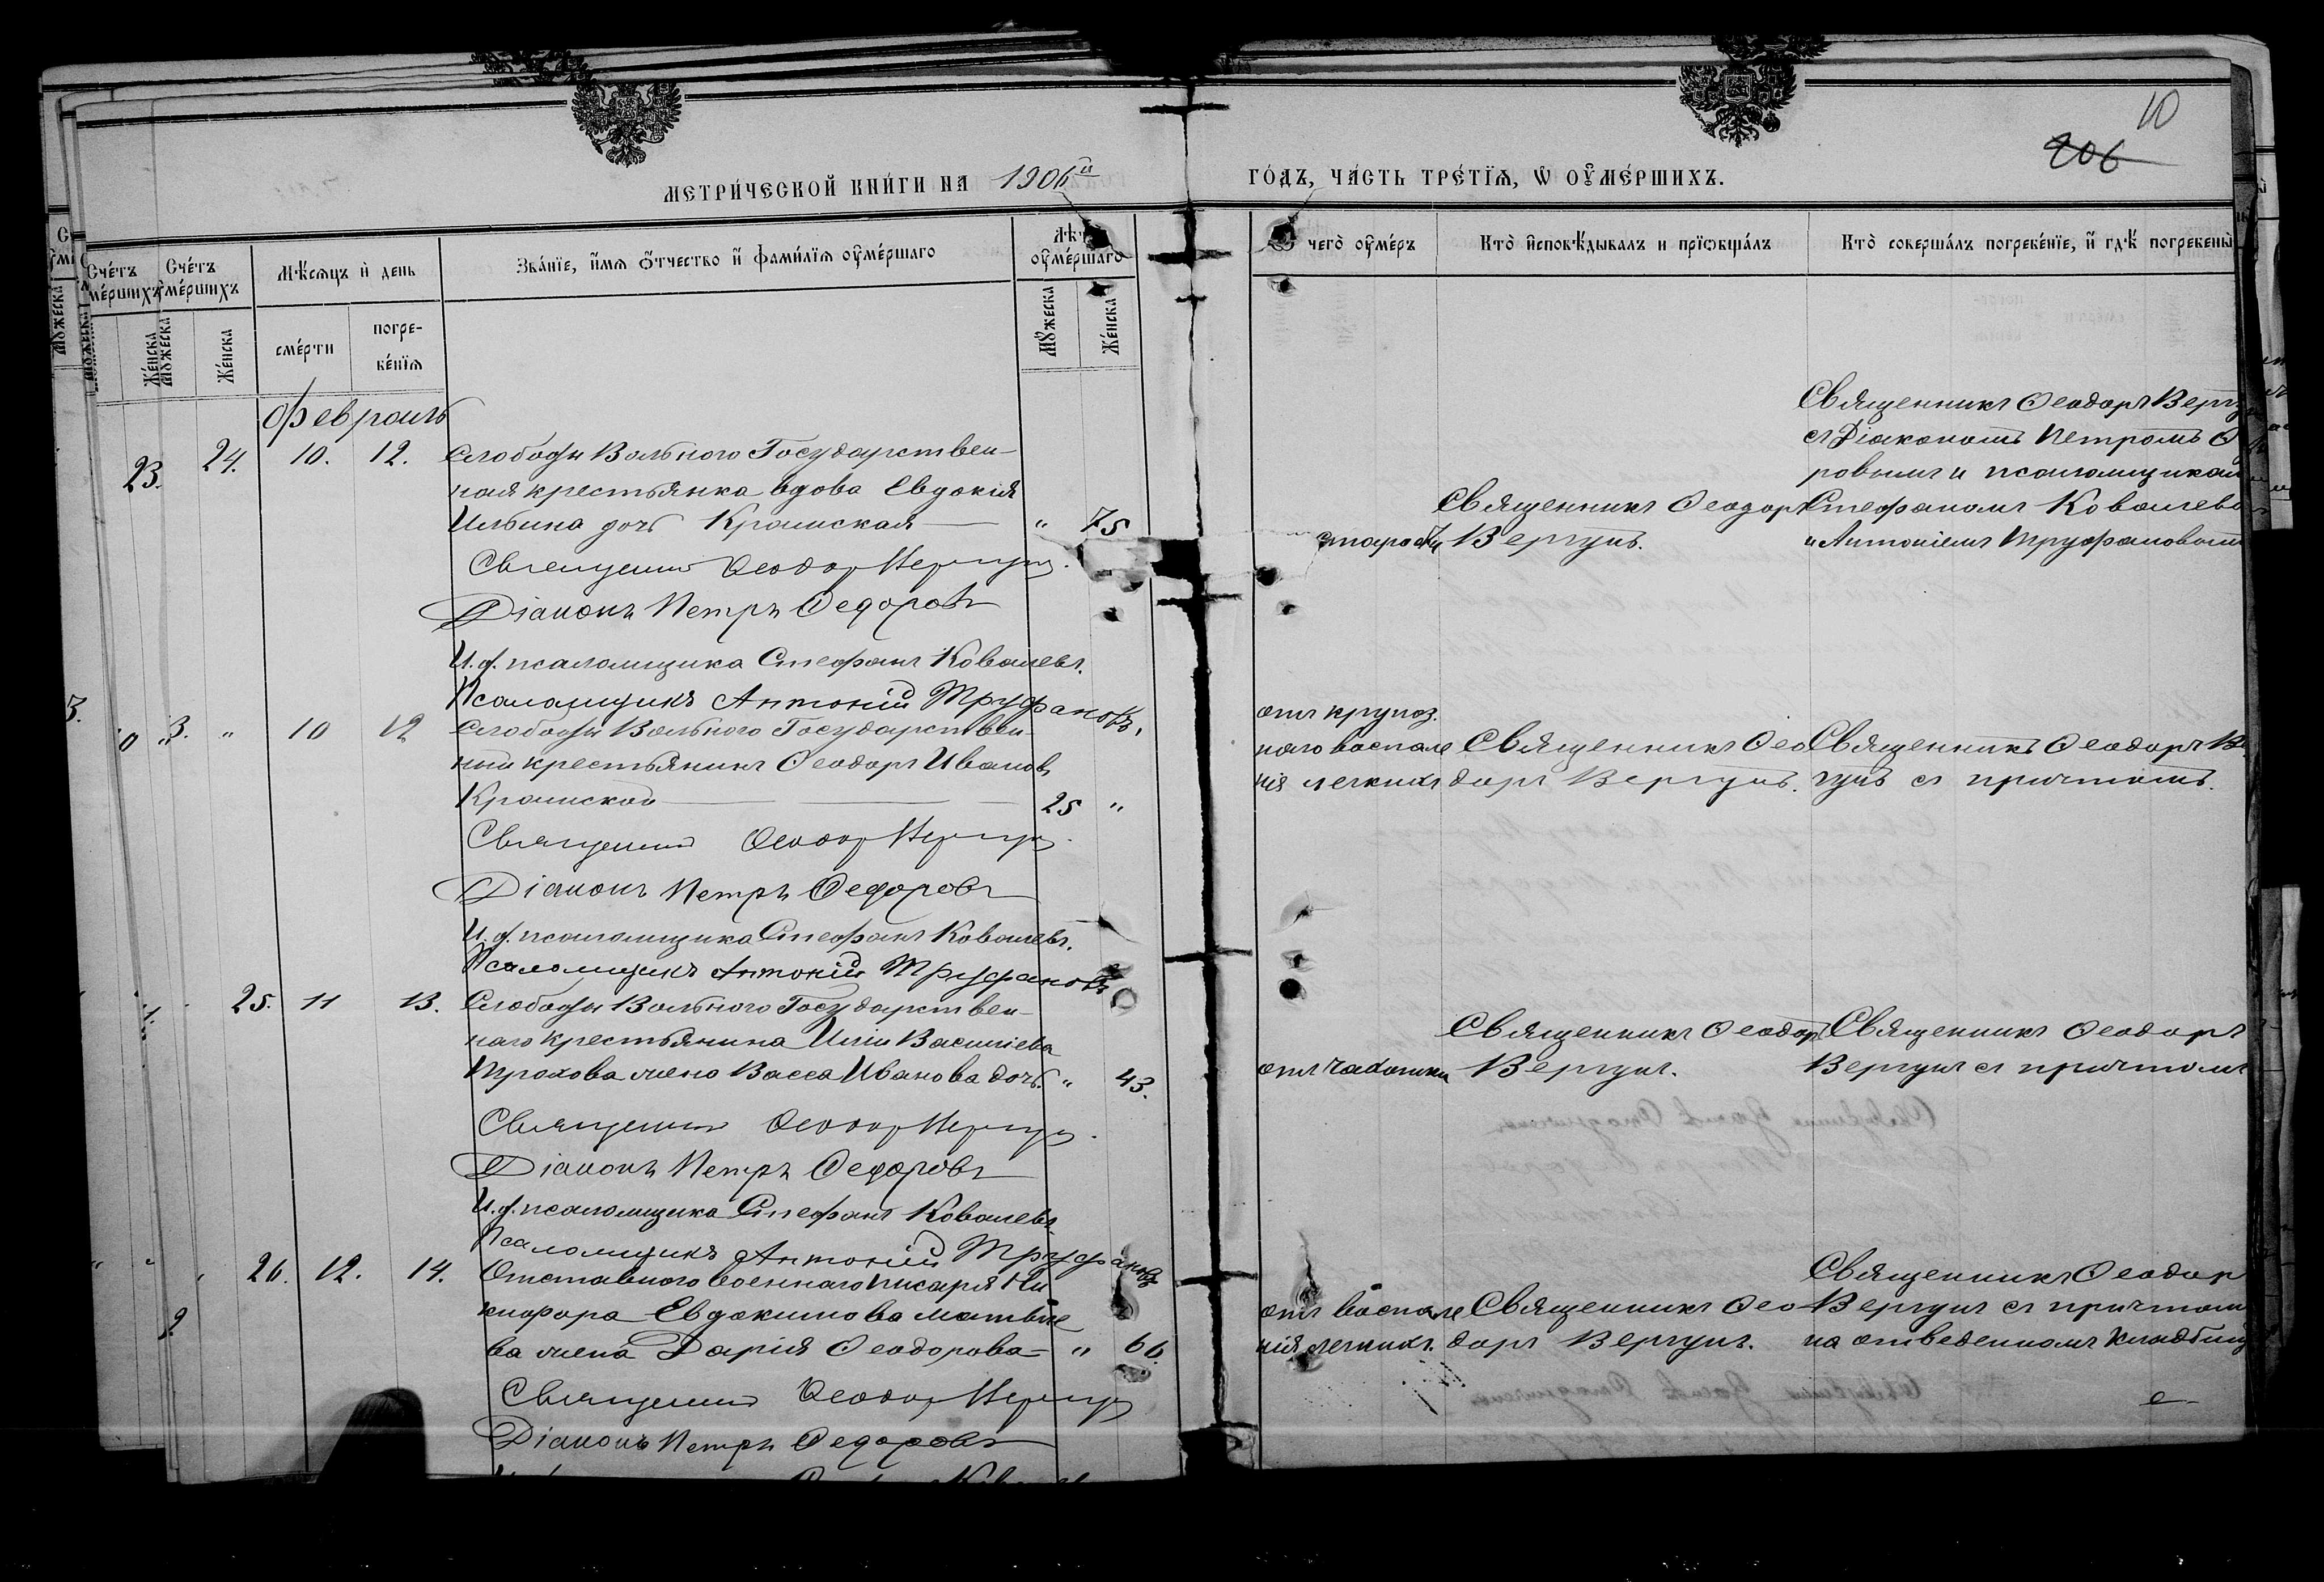 10
206
МЕТРИ́ЧЕСКОЙ КНИ́ГИ НА 1906й ГО́ДЪ, ЧА́СТЬ ТРЕ́ТЇѦ, Ѿ ОУ҆МЕ́РШИХЪ.
Счетъ
Счетъ
Мѣсѧцъ и день
Званїе, имѧ отчество и фамилїѧ оумершаго
Лѣт
оумершаго
чего оумеръ
Кто исповѣдывалъ и прїѡбщалъ
Кто совершалъ погребенїе, и гдѣ погребены
мершихъ
мершихъ
Женска
Мꙋжеска
Женска
смерти
погре-
бенїѧ
Мꙋжеска
Женска
Февраль
23. 24. 10. 12. Слободы Вольного Государствен-
ная крестьянка вдова Евдокія
Ильина дочь Крамская — " 75
Священник Феодор Вергун.
Діаконъ Петръ Федоровъ
И. д. псаломщика Стефанъ Ковалевъ.
Псаломщикъ Антоній Труфановъ.
старости
Священникъ Феодоръ
Вергунъ.
Священникъ Феодоръ Верг
съ Діакономъ Петромъ Ф
ровымъ и псаломщикам
Стефаномъ Ковалевы
и Антоніемъ Труфановым
3. " 10 12 Слободы Вольного Государствен-
ный крестьянинъ Феодоръ Ивановъ
Крамской — 25 "
Священник Феодор Вергун.
Діаконъ Петръ Федоровъ
И. д. псаломщика Стефанъ Ковалевъ.
Псаломщикъ Антоній Труфановъ
отъ крупоз.
наго воспале
нія легкихъ
Священникъ Фео
доръ Вергунъ.
Священникъ Феодоръ Ве
гунъ съ причтомъ.
25. 11 13. Слободы Вольного Государствен-
наго крестьянина Иліи Василіева
Прохова жена Васса Иванова дочь. " 43.
Священник Феодор Вергун.
Діаконъ Петръ Федоровъ
И. д. псаломщика Стефанъ Ковалевъ
Псаломщикъ Антоній Труфановъ
отъ чахотки
Священникъ Феодоръ
Вергунъ.
Священникъ Феодоръ
Вергунъ съ причтомъ
26. 12. 14. Отставного военнаго писаря Ни
кифора Евдокимова Матвѣе
ва жена Дарія Феодорова — " 66.
Священник Феодор Вергун
Діаконъ Петръ Федоровъ
отъ воспале
нія легкихъ.
Священникъ Фео-
доръ Вергунъ.
Священникъ Феодор
Вергунъ съ причтом
на отведенномъ кладбищ
е